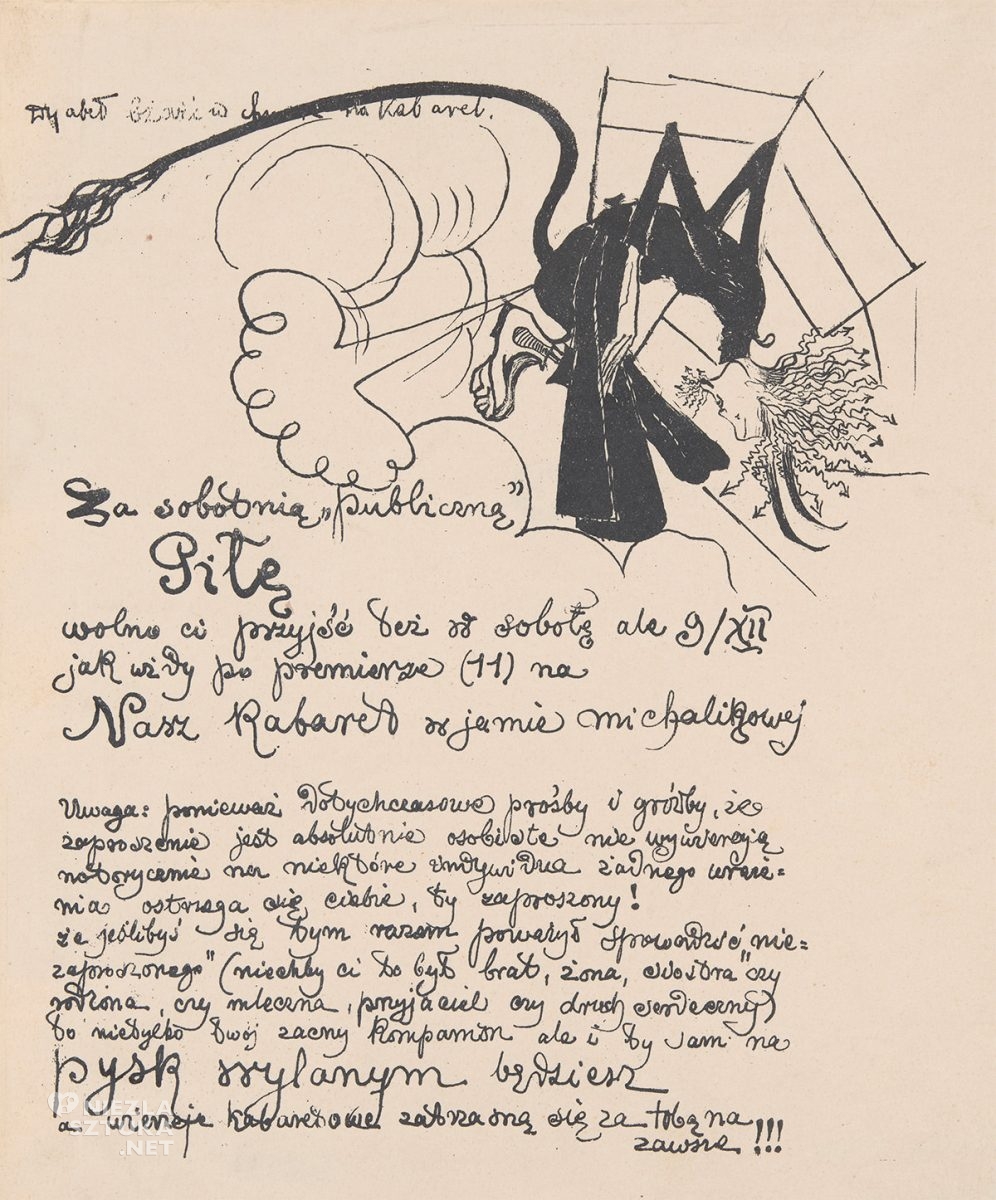 Dyabeł w chmurze na Kabaret.
Za sobotnią „Publiczną”
Piłę
wolno ci przyjść też w sobotę ale 9/XII
jak wżdy po premierze (11) na
Nasz Kabaret w jamie michalikowej
Uwaga: ponieważ dotychczasowe prośby i groźby, że
zaproszenie jest absolutnie osobiste nie wywierają
notorycznie na niektóre indywidua żadnego wraże=
nia ostrzega się ciebie, ty zaproszony!
że jeślibyś się tym razem poważył sprowadzić „nie=
zaproszonego” (niechby ci to był brat, żona, siostra czy
rodzona, czy mleczna, przyjaciel czy druh serdeczny)
to nietylko twój zacny kompanion ale i ty sam na
pysk wylanym będziesz
a wierzeje kabaretowe zatrzasną się za tobą na
zawsze !!!
NIEZŁA
SZTUKA
.NET